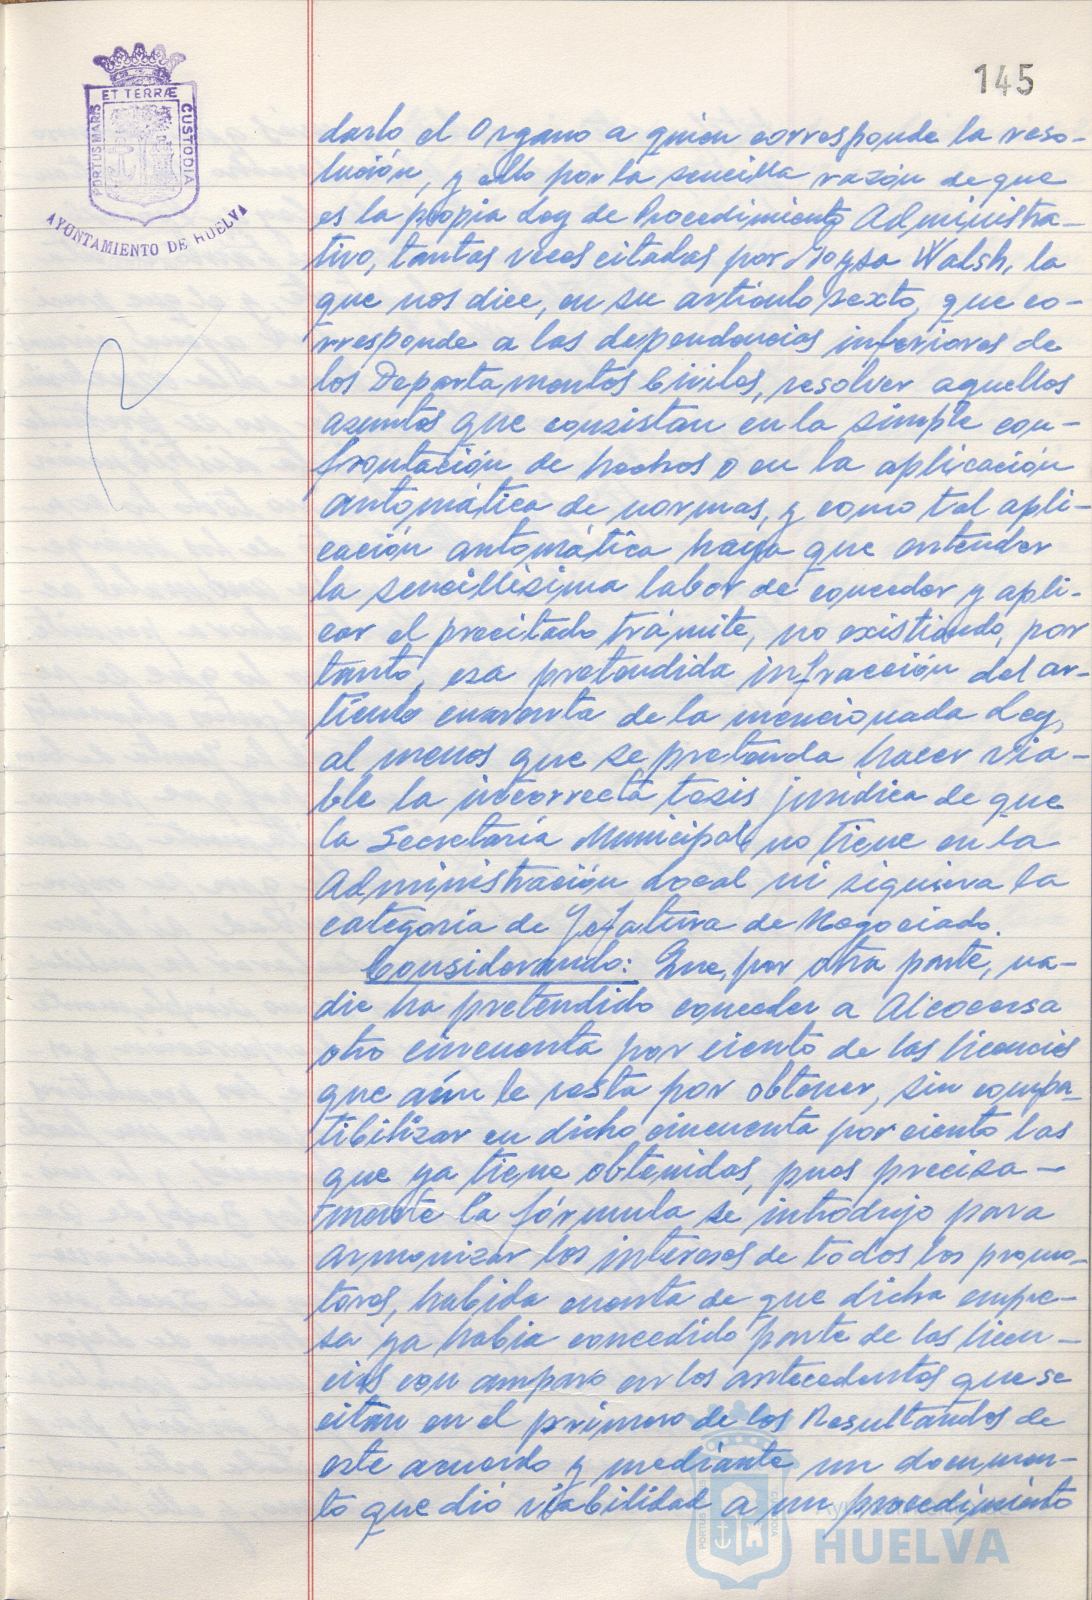 145
PORTUS MARIS ET TERRÆ CUSTODIA
AYUNTAMIENTO DE HUELVA
darlo el Organo a quien corresponde la reso-
lución, y ello por la sencilla razón de que
es la propia Ley de Procedimiento Administra-
tivo, tantas veces citadas por Noysa Walsh, la
que nos dice, en su artículo sexto, que co-
rresponde a las dependencias inferiores de
los Departamentos Civiles, resolver aquellos
asuntos que consistan en la simple con-
frontación de hechos o en la aplicación
automática de normas, y como tal apli-
cación automática haya que entender
la sencillisima labor de conceder y apli-
car el precitado trámite, no existiendo, por
tanto, esa pretendida infracción del ar-
tículo cuarenta de la mencionada Ley,
al menos que se pretenda hacer via-
ble la incorrecta tesis jurídica de que
la Secretaría Municipal no tiene en la
Administración Local ni siquiera la
categoría de Jefatura de Negociado.
Considerando: Que, por otra parte, na-
die ha pretendido conceder a Alcocersa
otro cincuenta por ciento de las licencias
que aún le resta por obtener, sin compa-
tibilizar en dicho cincuenta por ciento las
que ya tiene obtenidas, pues precisa-
mente la fórmula se introdujo para
armonizar los intereses de todos los promo-
tores, habida cuenta de que dicha empre-
sa ya había concedido parte de las licen-
cias con amparo en los antecedentes que se
citan en el primero de los Resultandos de
este acuerdo y mediante un documen-
to que dió viabilidad a un procedimiento
HUELVA